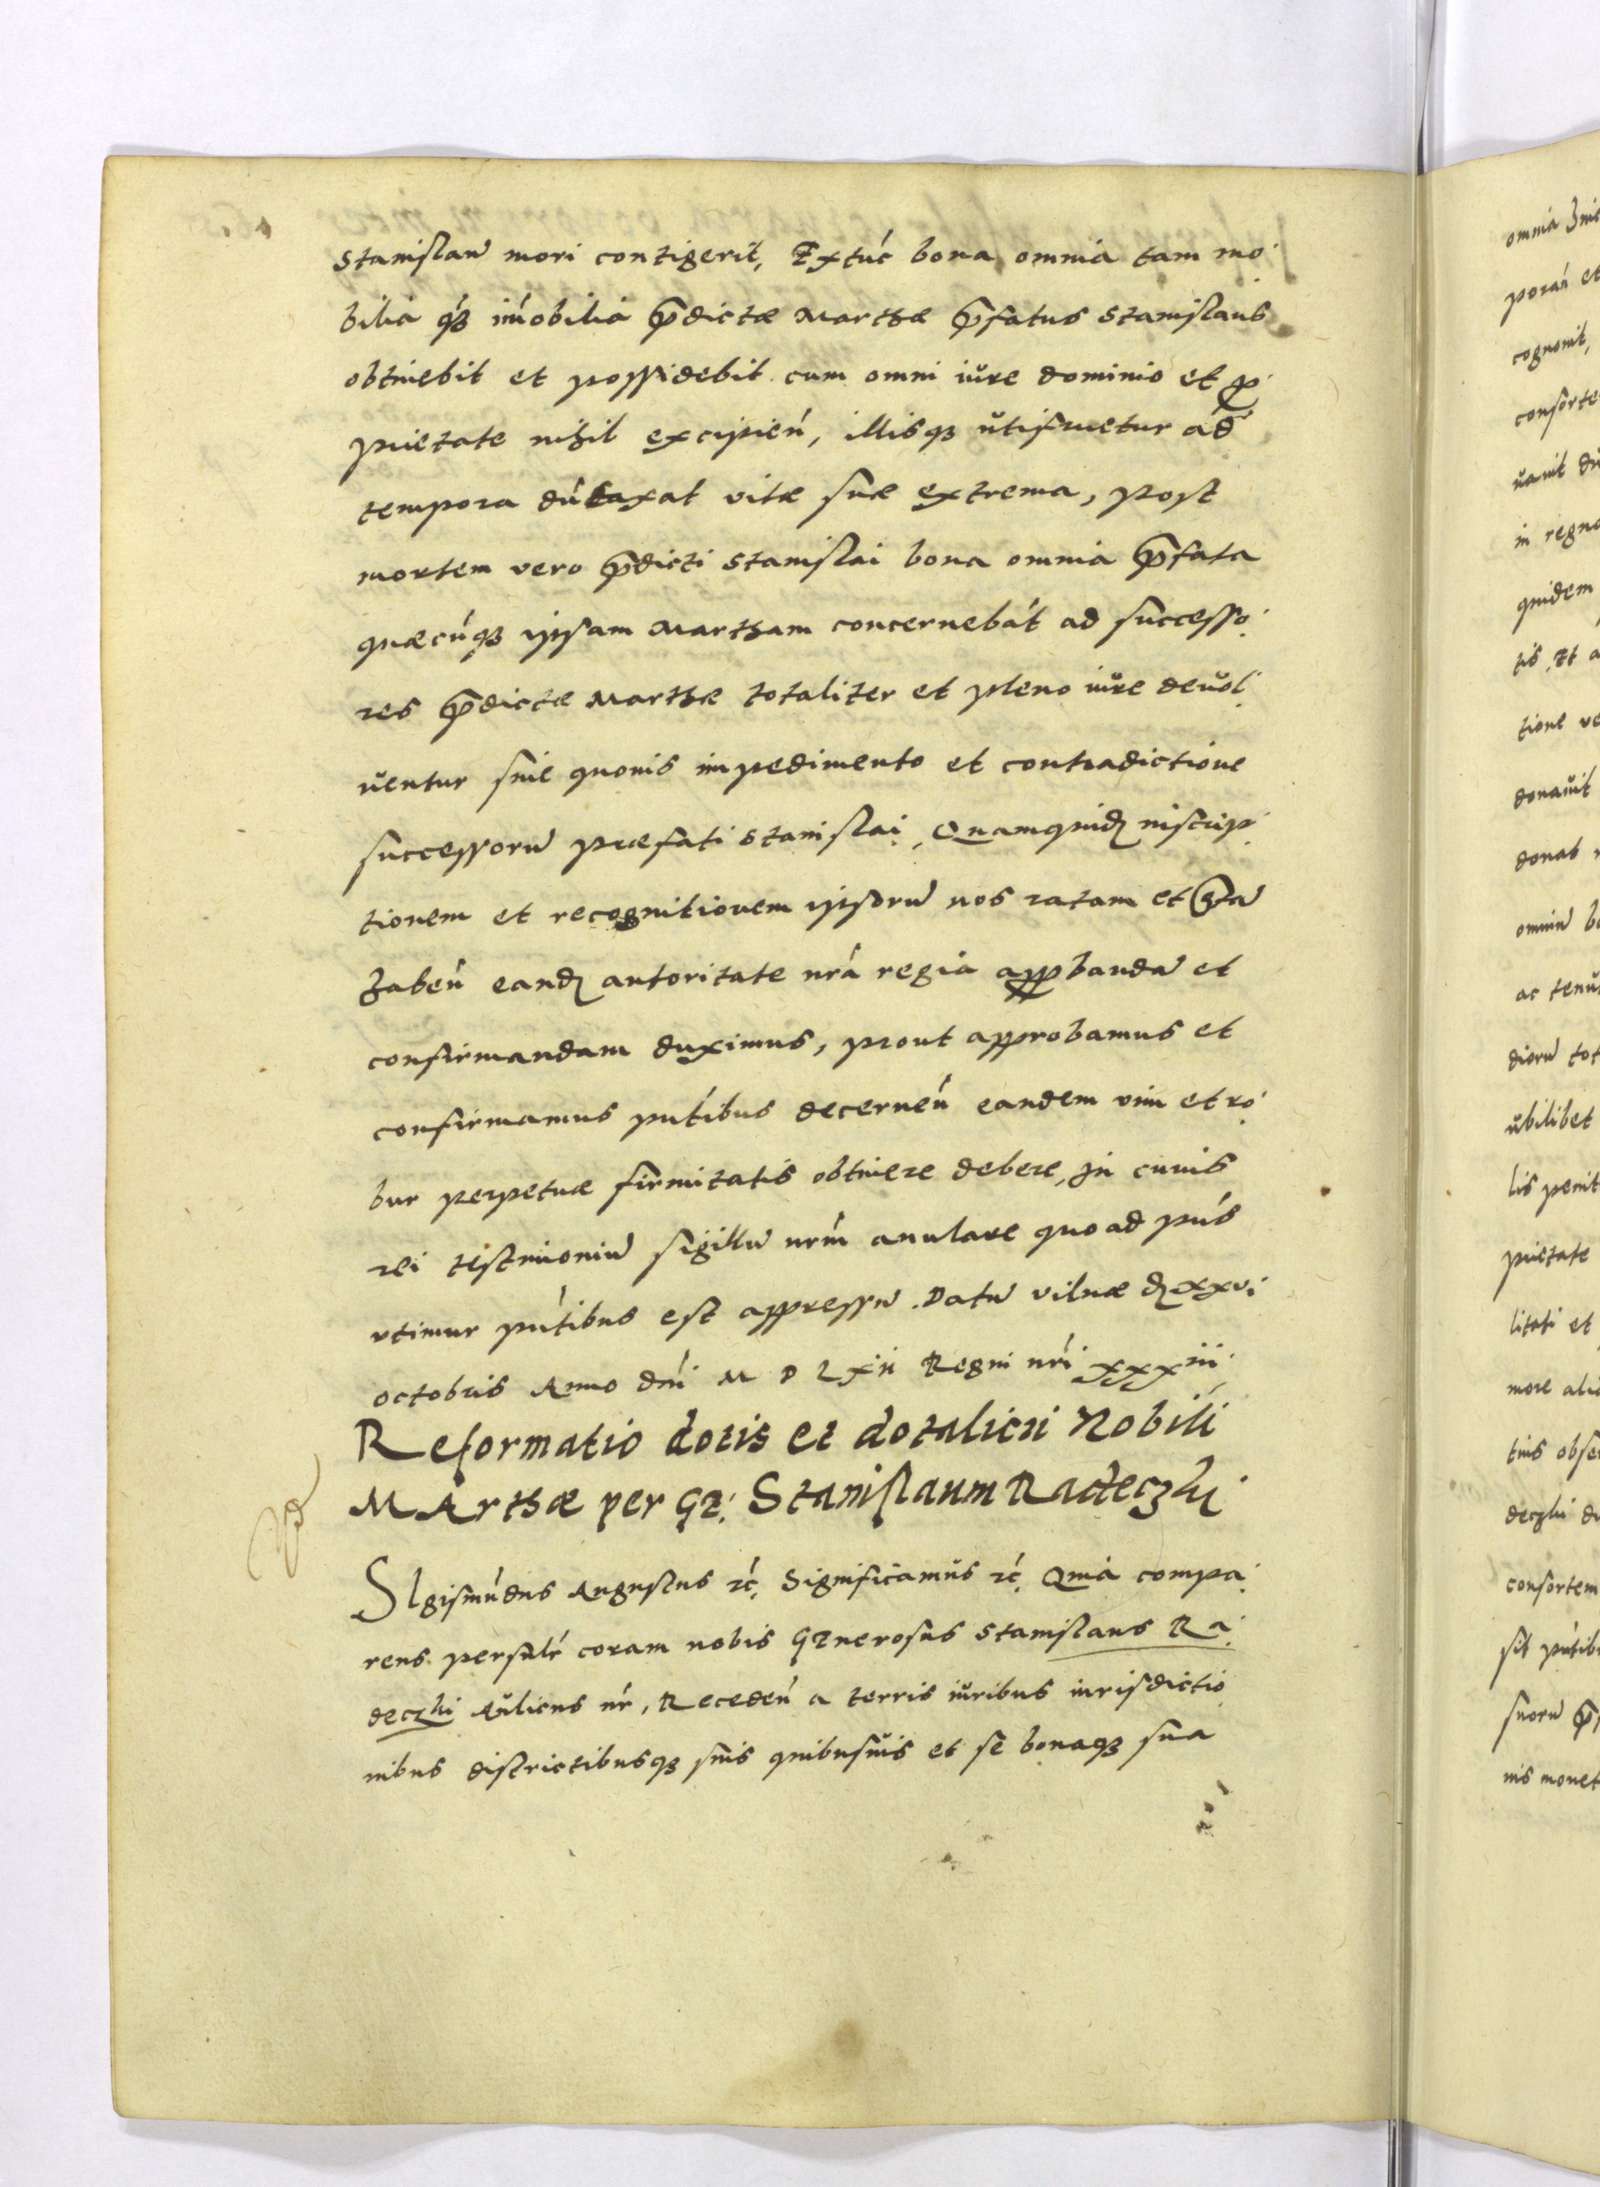 Stanislaū mori contigerit, Extūc bona omnia tam mo
bilia q̄ꝫ īmobilia p̄dictæ Marthæ p̄fatus Stanislaus
obtinebit et possidebit cum omni iure dominio et ꝓ
prietate nihil excipień, illisqꝫ utifruetur ad
tempora dūtaxat vitæ suæ extrema, post
mortem vero p̄dicti Stanislai bona omnia p̄fata
quæcūqꝫ ipsam Martham concernebāt ad successo
res p̄dictæ Marthæ totaliter et pleno iure devol
ventur sine quovis impedimento et contradictione
successorū præfati Stanislai, Quamquidē inscrip
tionem et recognitionem ipsorū nos ratam et gratā
habeń eandē autoritate nrā regia approbandā et
confirmandam duximus, prout approbamus et
confirmamus pn̄tibus decerneń eandem vim et ro
bur perpetuæ firmitatis obtinere debere, In cuius
rei testimoniū sigillū nrm̄ anulare quo ad pn̄s
utimur pn̄tibus est appressū. Datū Vilnæ d xxvi
octobris Anno dn̄i M D Lxii Regni nr̄i xxxiii
Reformatio dotis et dotalicii Nobili
Marthæ per Ge: Stanislaum Radeczki
SIgismūdus Augustus ꝛc̄, Significamus ꝛc̄, Quia compa
rens personalr̄ coram nobis Generosus Stanislaus Ra
deczki Aulicus nr̄, Recedeń a terris iuribus iurisdictio
nibus districtibusqꝫ suis quibusvis et se bonaqꝫ sua
omnia
poräń et
cognovit,
consorte
in regno
quidem
tis, Et a
tione ve
donavit
donat
omniū
ac tenu
diorū tot
ubilibet
prietate
litati et
more
tius obse
deczki
consortem
sit pn̄tib
suorū
nis monet